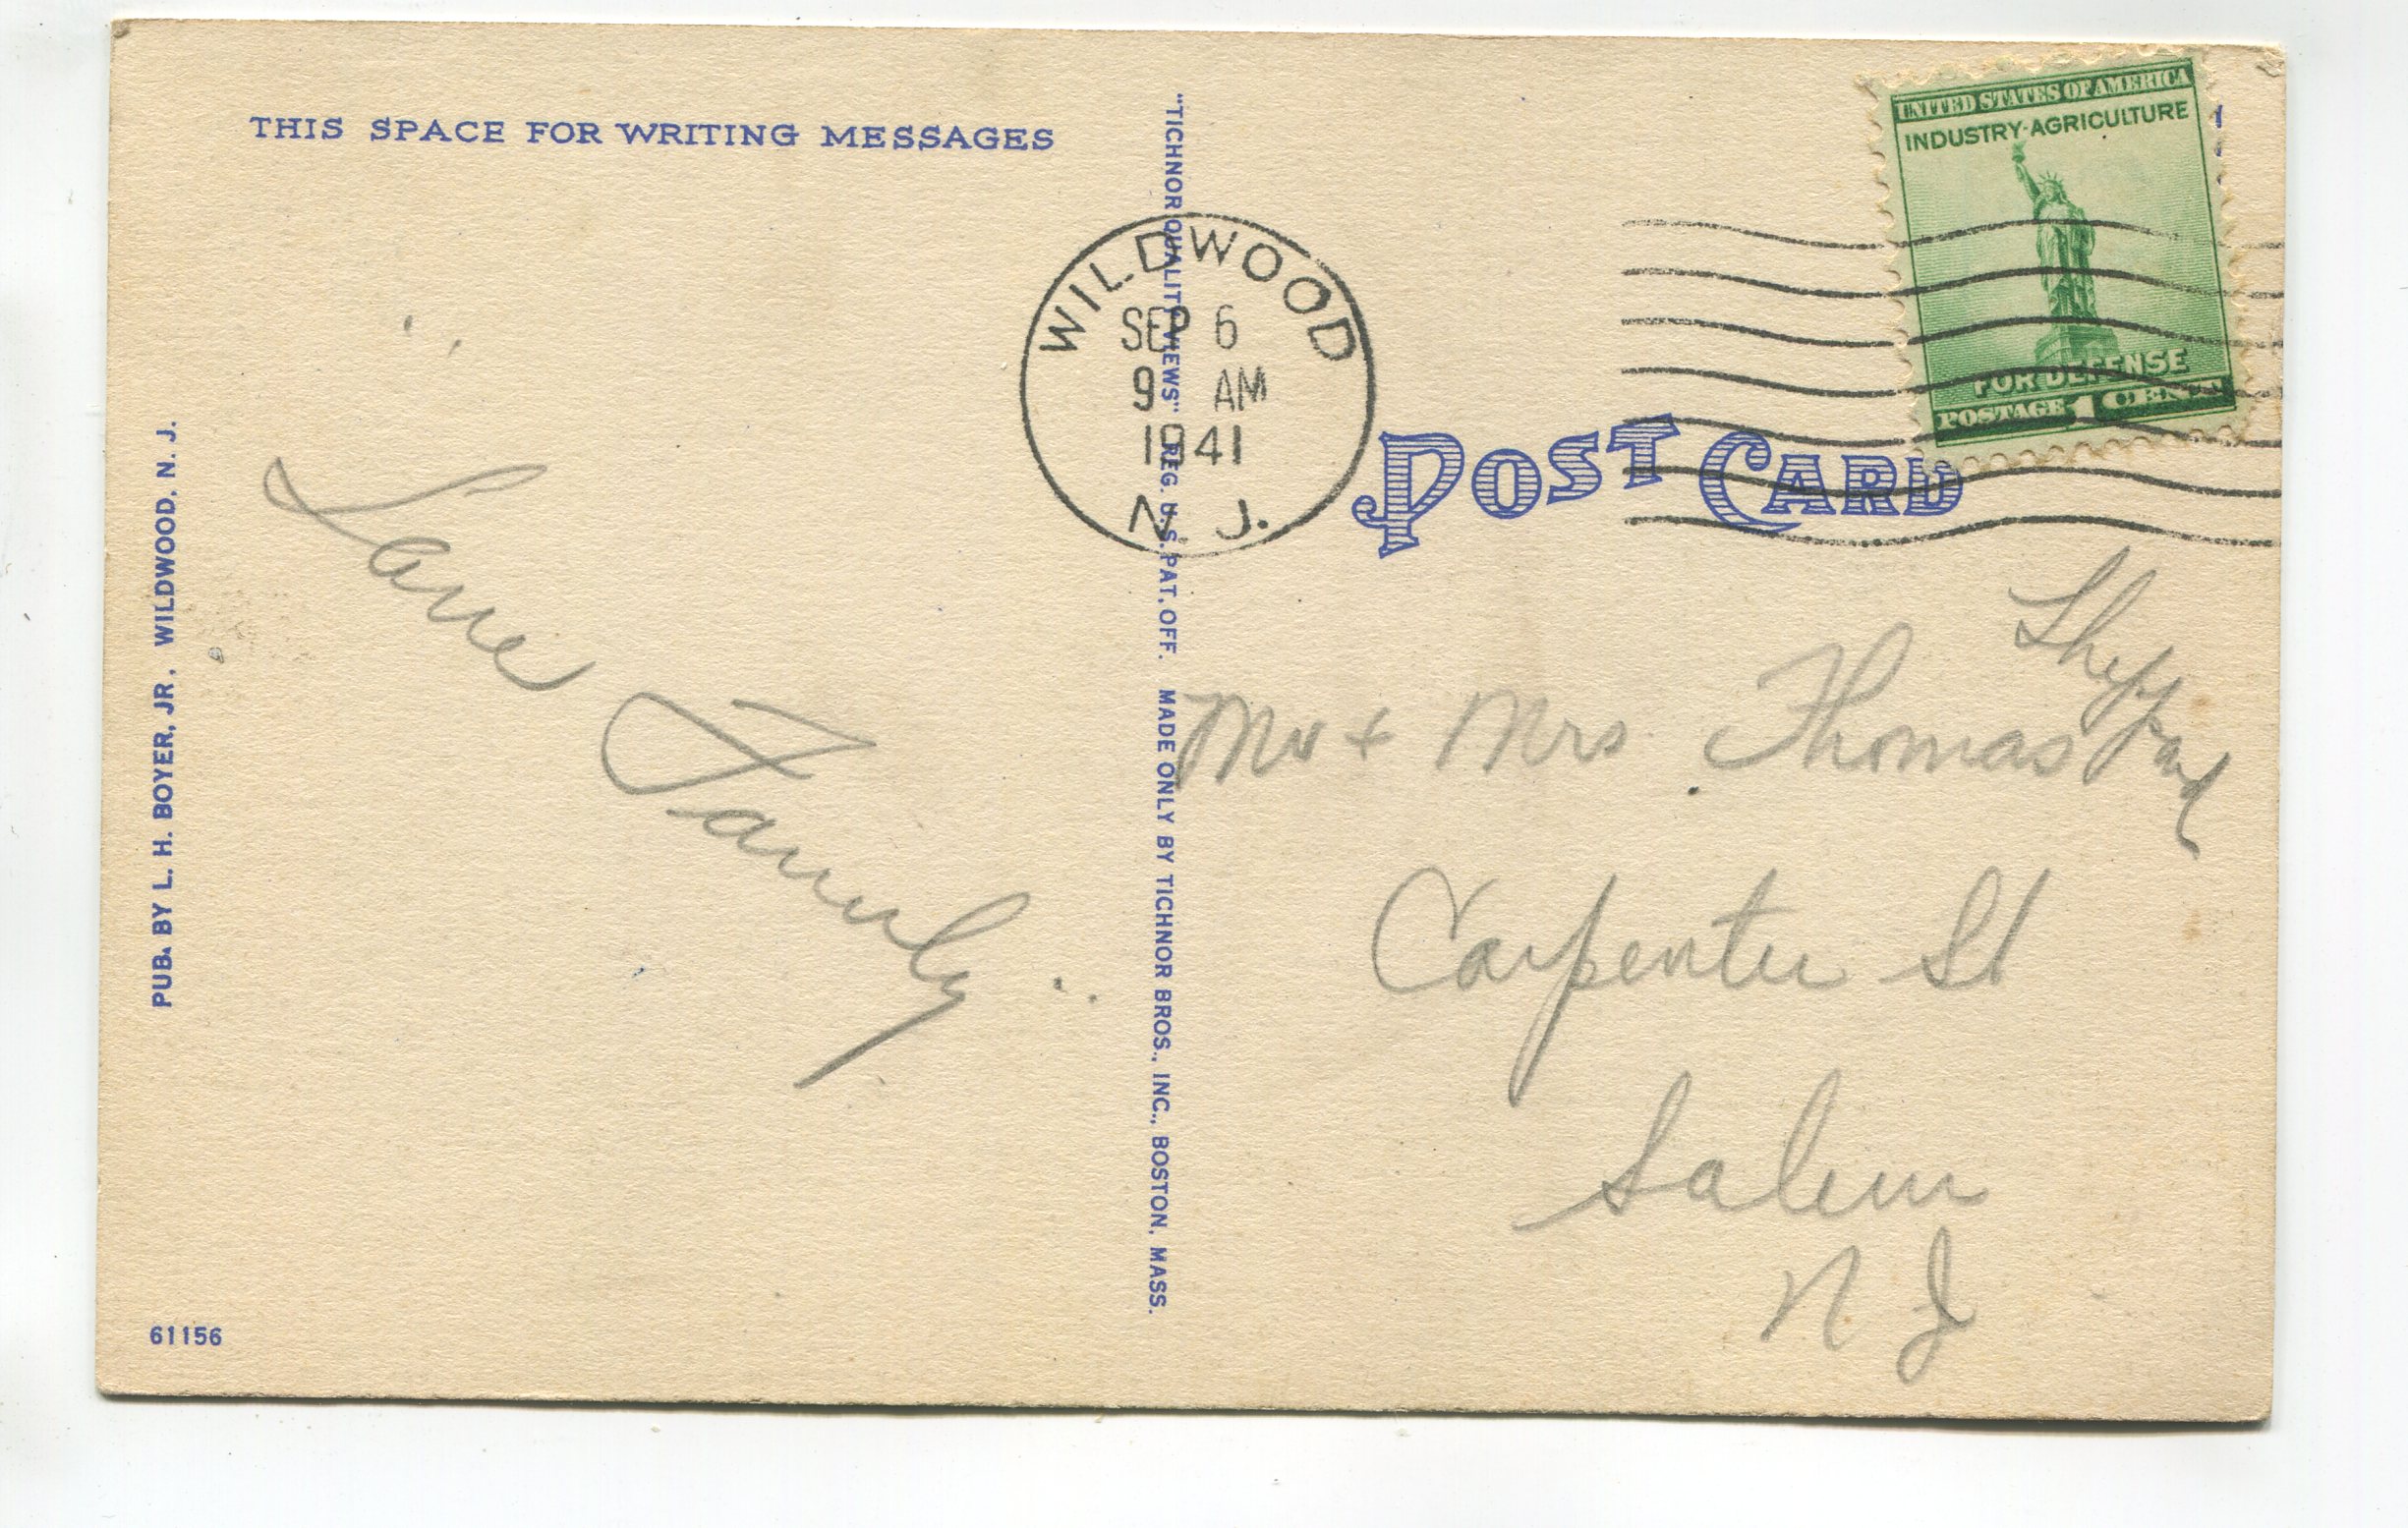 THIS SPACE FOR WRITING MESSAGES
PUB. BY L. H. BOYER, JR., WILDWOOD, N. J.
Lane
Family
61156
"TICHNOR QUALITY VIEWS" REG. U.S. PAT. OFF. MADE ONLY BY TICHNOR BROS., INC., BOSTON, MASS.
WILDWOOD
SEP 6
9 AM
1941
N. J.
UNITED STATES OF AMERICA
INDUSTRY-AGRICULTURE
FOR DEFENSE
POSTAGE 1 CENT
POST CARD
Mr + Mrs Thomas Sheppard
Carpenter St
Salem
N J